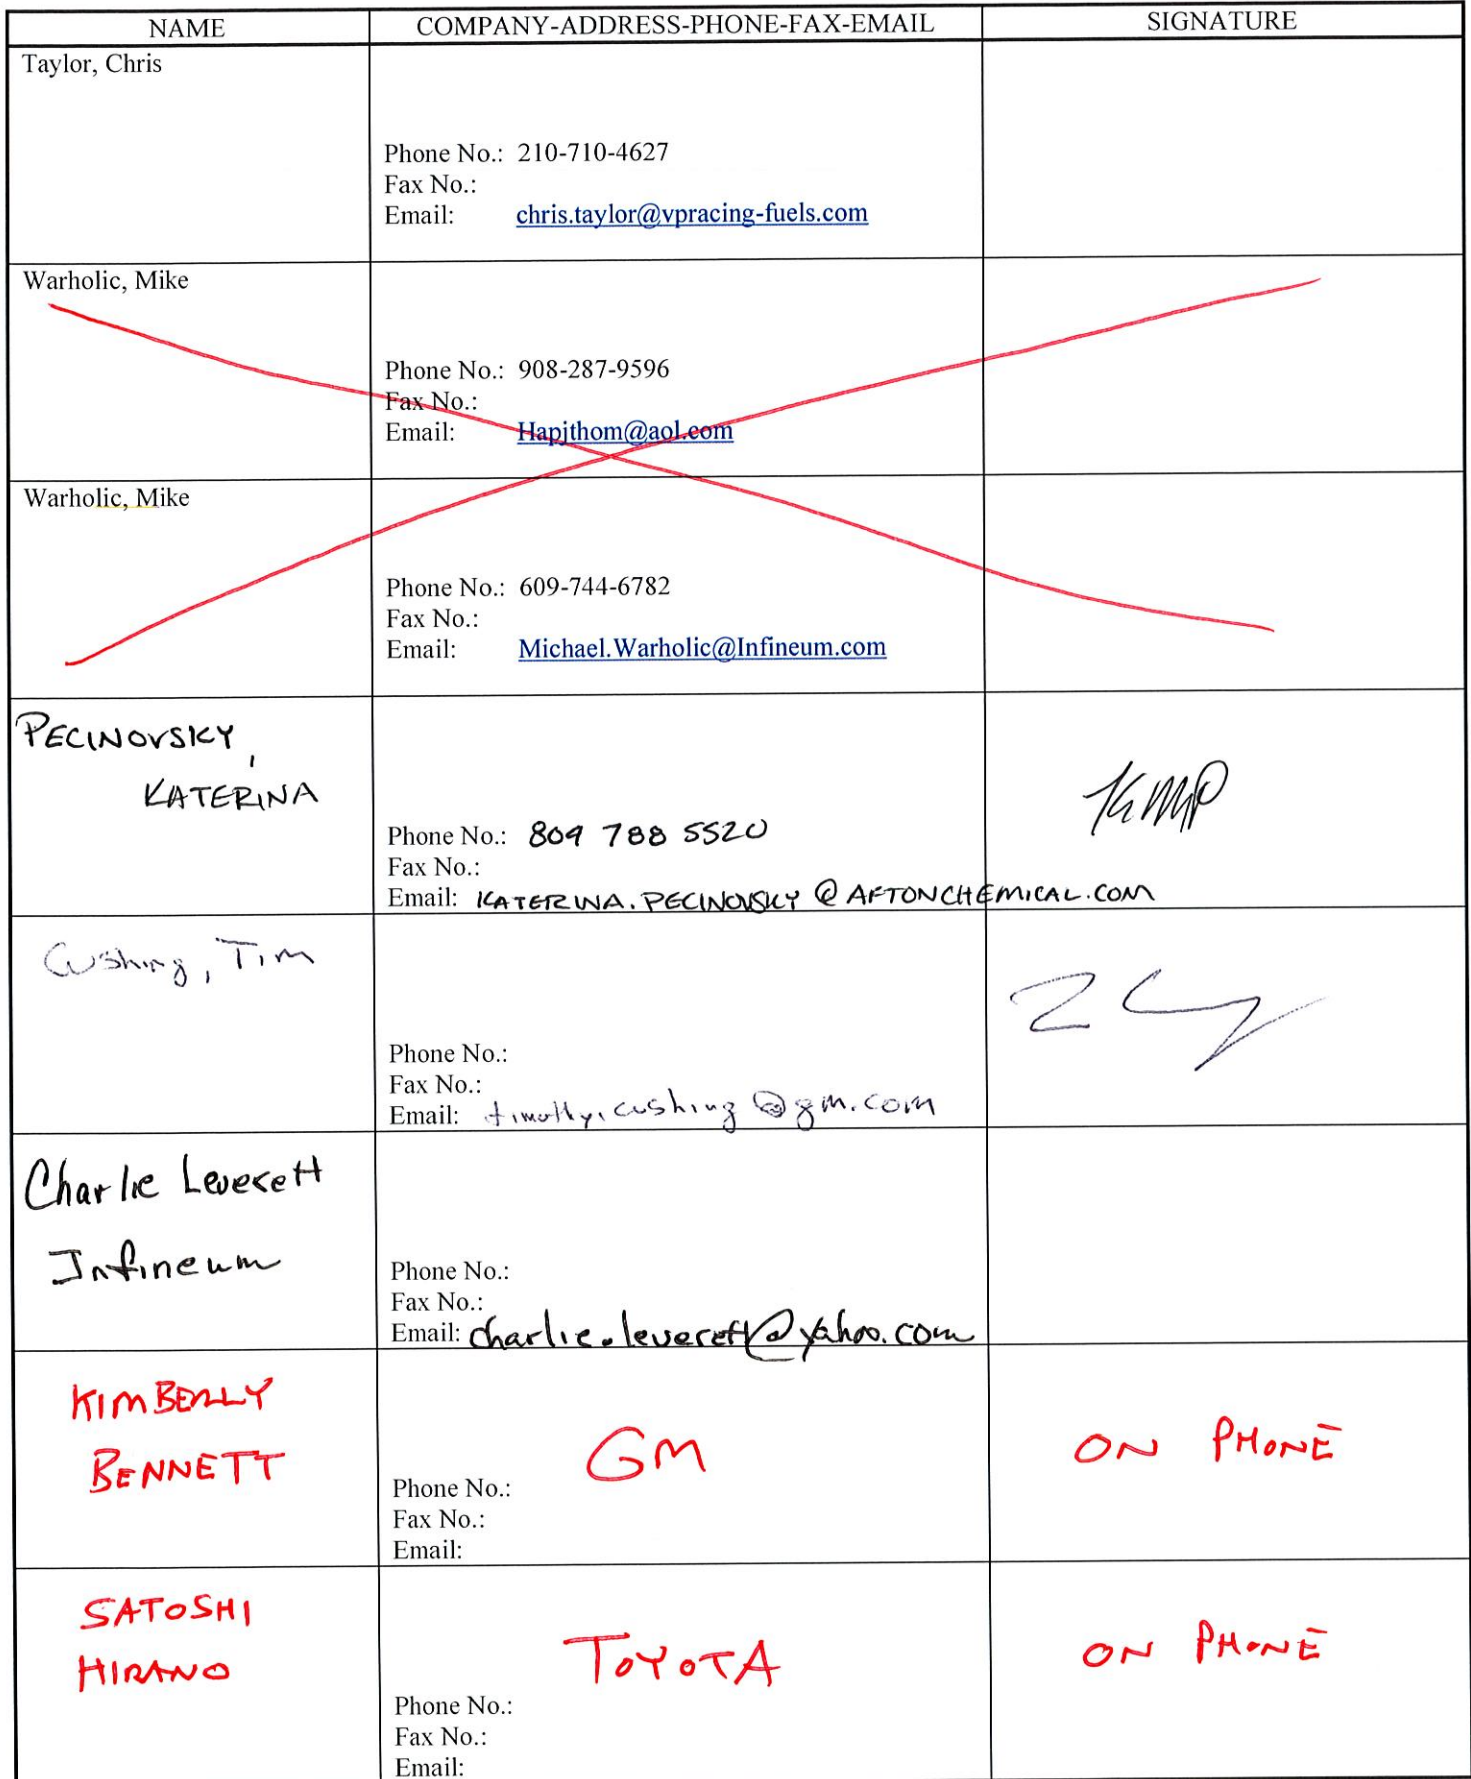 NAME COMPANY-ADDRESS-PHONE-FAX-EMAIL SIGNATURE
Taylor, Chris
Phone No.: 210-710-4627
Fax No.:
Email: chris.taylor@vpracing-fuels.com
Warholic, Mike
Phone No.: 908-287-9596
Fax No.:
Email: Hapjthom@aol.com
Warholic, Mike
Phone No.: 609-744-6782
Fax No.:
Email: Michael.Warholic@Infineum.com
PECINOVSKY,
KATERINA
KMP
Phone No.: 804 788 5520
Fax No.:
Email: KATERINA.PECINOVSKY@AFTONCHEMICAL.COM
Cushing, Tim
Phone No.:
Fax No.:
Email: timothy.cushing@gm.com
Charlie Leverett
Infineum
Phone No.:
Fax No.:
Email: charlie.leverett@yahoo.com
KIMBERLY
BENNETT
GM
ON PHONE
Phone No.:
Fax No.:
Email:
SATOSHI
HIRANO
TOYOTA
ON PHONE
Phone No.:
Fax No.:
Email: